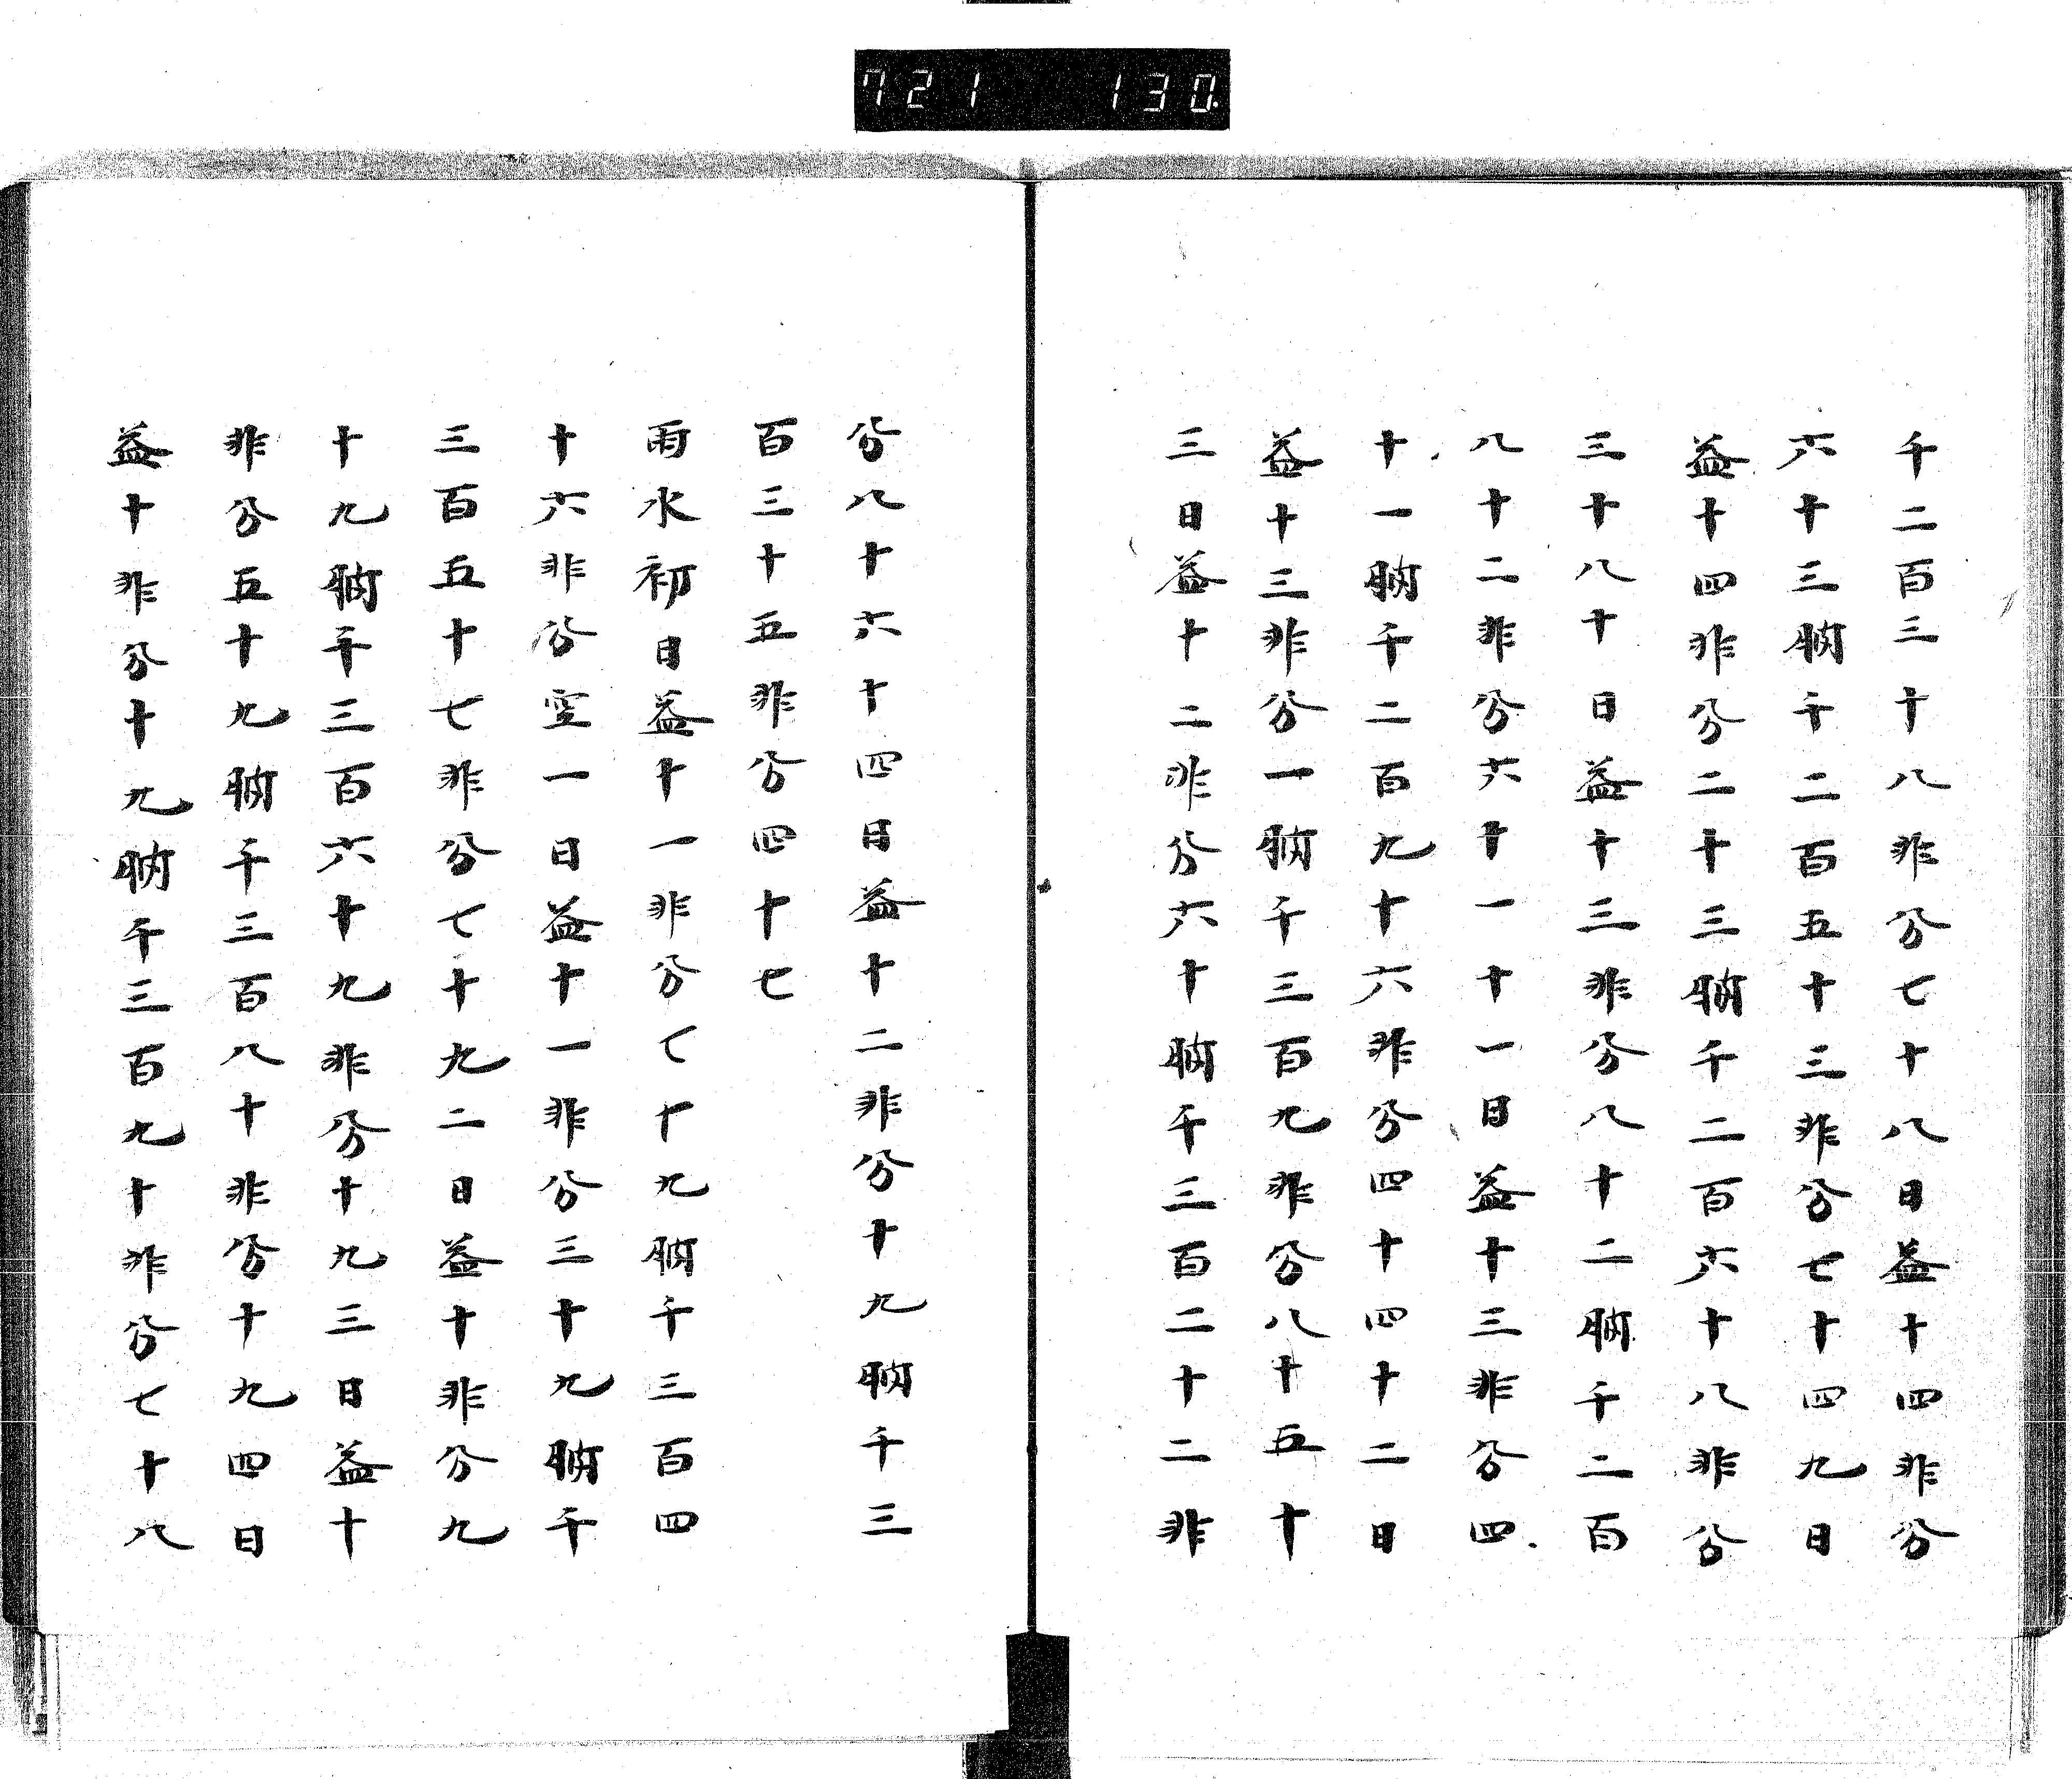 721 130.
千二百三十八非分七十八日益十四非分
六十三朒千二百五十三非分七十四九日
益十四非分二十三朒千二百六十八非分
三十八十日益十三非分八十二朒千二百
八十二非分六十一十一日益十三非分四
十一朒千二百九十六非分四十四十二日
益十三非分一朒千三百九非分八十五十
三日益十二非分六十朒千三百二十二非
分八十六十四日益十二非分十九朒千三
百三十五非分四十七
雨水初日益十一非分七十九朒千三百四
十六非分空一日益十一非分三十九朒千
三百五十七非分七十九二日益十非分九
十九朒千三百六十九非分十九三日益十
非分五十九朒千三百八十非分十九四日
益十非分十九朒千三百九十非分七十八